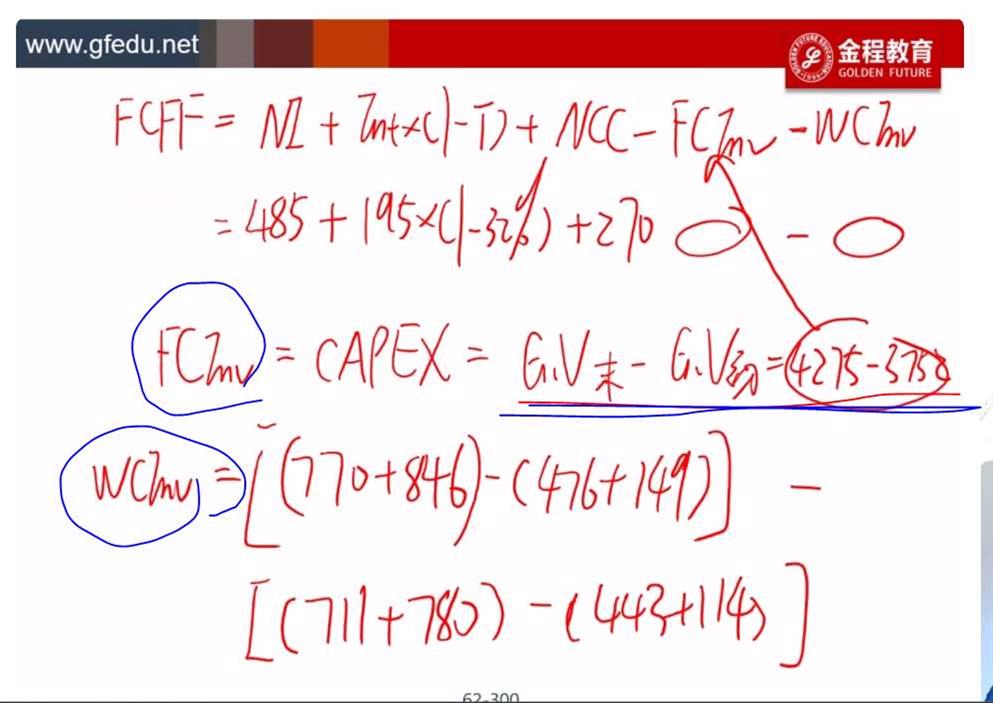 www.gfedu.net
金程教育
GOLDEN FUTURE
FCFF = NI + Int×(1-T) + NCC - FCInv - WCInv
= 485 + 195×(1-32%) + 270 -
FCInv = CAPEX = G.V末 - G.V初 = 4275-3752
WCInv = [(770+846)-(476+149)] -
[(711+780)-(443+114)]
62-300